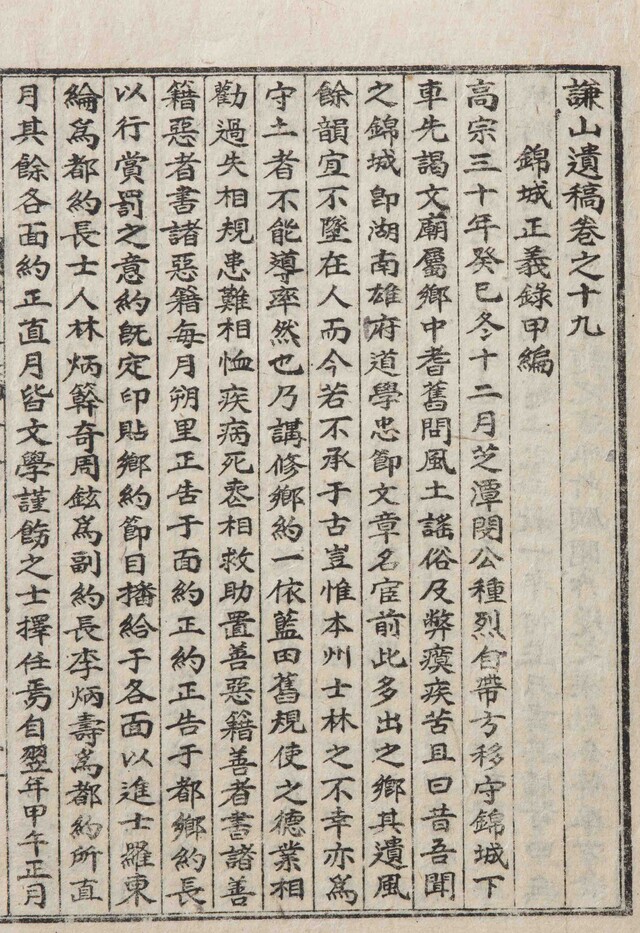 謙山遺稿卷之十九
錦城正義錄甲編
高宗三十年癸巳冬十二月芝潭閔公種烈自帶方移守錦城下
車先謁文廟屬鄉中耆舊問風土謠俗及弊瘼疾苦且曰昔吾聞
之錦城卽湖南雄府道學忠節文章名宦前此多出之鄉其遺風
餘韻宜不墜在人而今若不承于古豈惟本州士林之不幸亦爲
守土者不能導率然也乃講修鄉約一依藍田舊規使之德業相
勸過失相規患難相恤疾病死喪相救助置善惡籍善者書諸善
籍惡者書諸惡籍每月朔里正告于面約正約正告于都鄉約長
以行賞罰之意約旣定印貼鄉約節目播給于各面以進士羅東
綸爲都約長士人林炳簳奇周鉉爲副約長李炳壽爲都約所直
月其餘各面約正直月皆文學謹飭之士擇任焉自翌年甲午正月